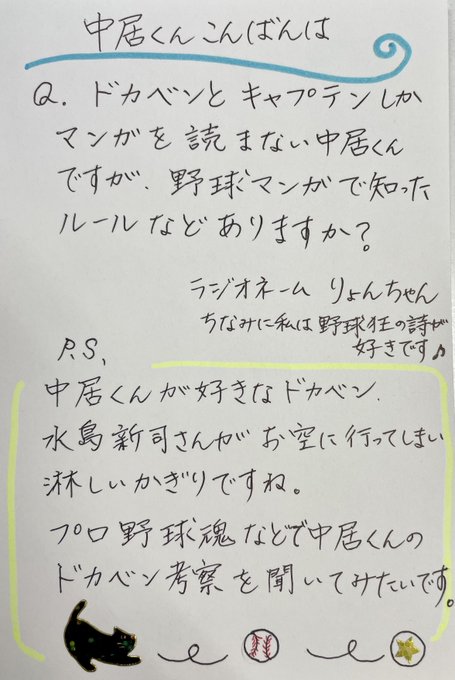 中居くんこんばんは
Q. ドカベンとキャプテンしか
マンガを読まない中居くん
ですが、野球マンガで知った
ルールなどありますか？
ラジオネーム りょんちゃん
ちなみに私は野球狂の詩が
好きです♪
P.S.
中居くんが好きなドカベン.
水島新司さんがお空に行ってしまい
淋しいかぎりですね。
プロ野球魂などで中居くんの
ドカベン考察を聞いてみたいです。